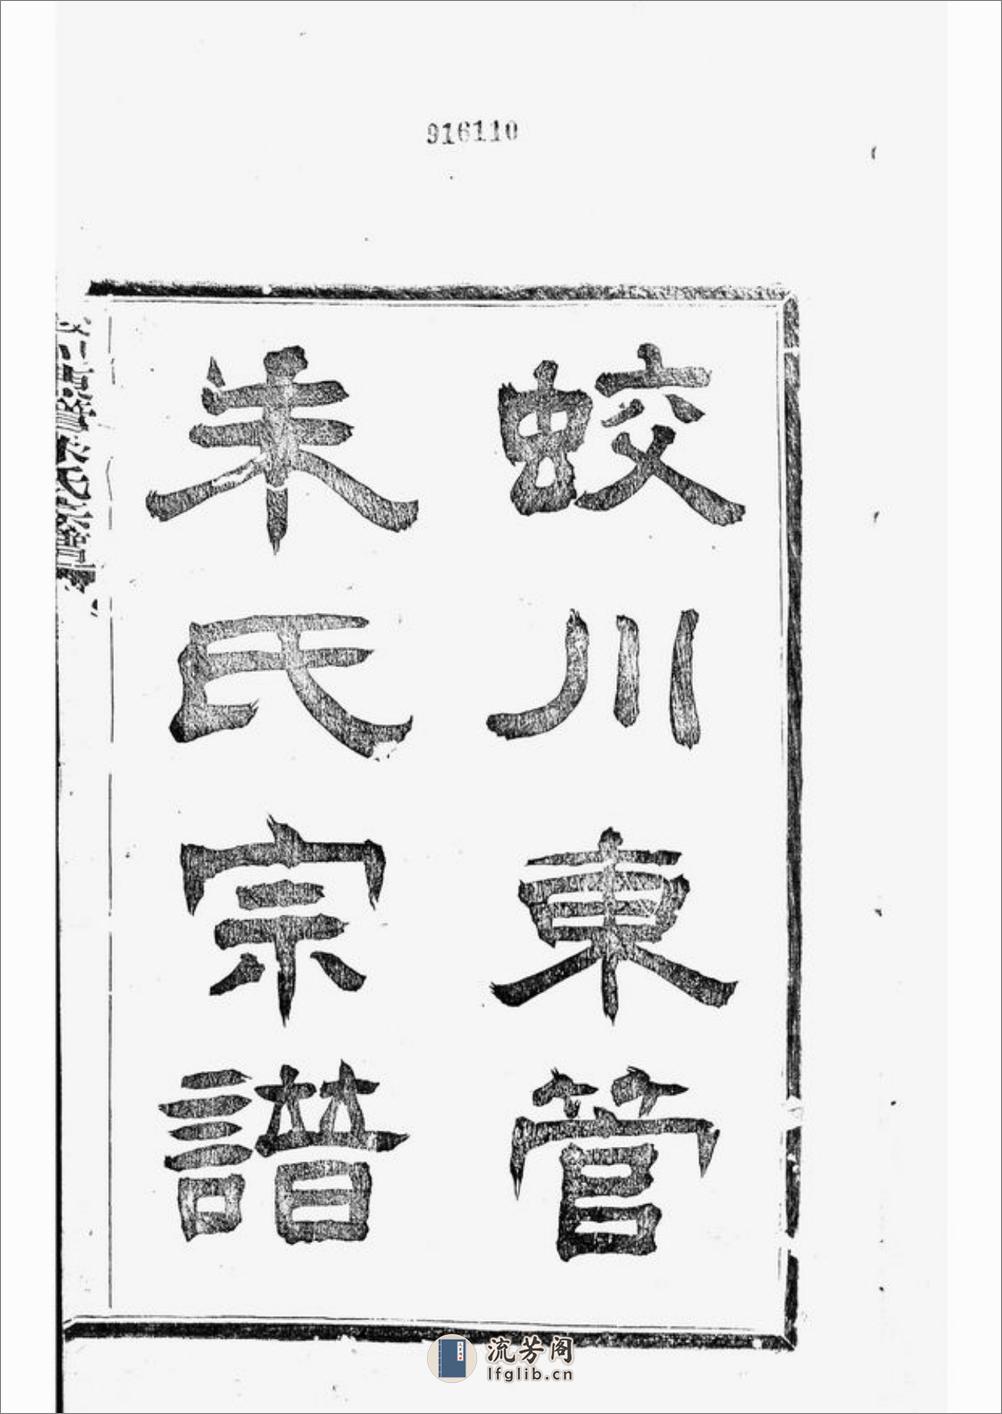 916110
蛟川東管
朱氏宗譜
流芳阁
lfglib.cn